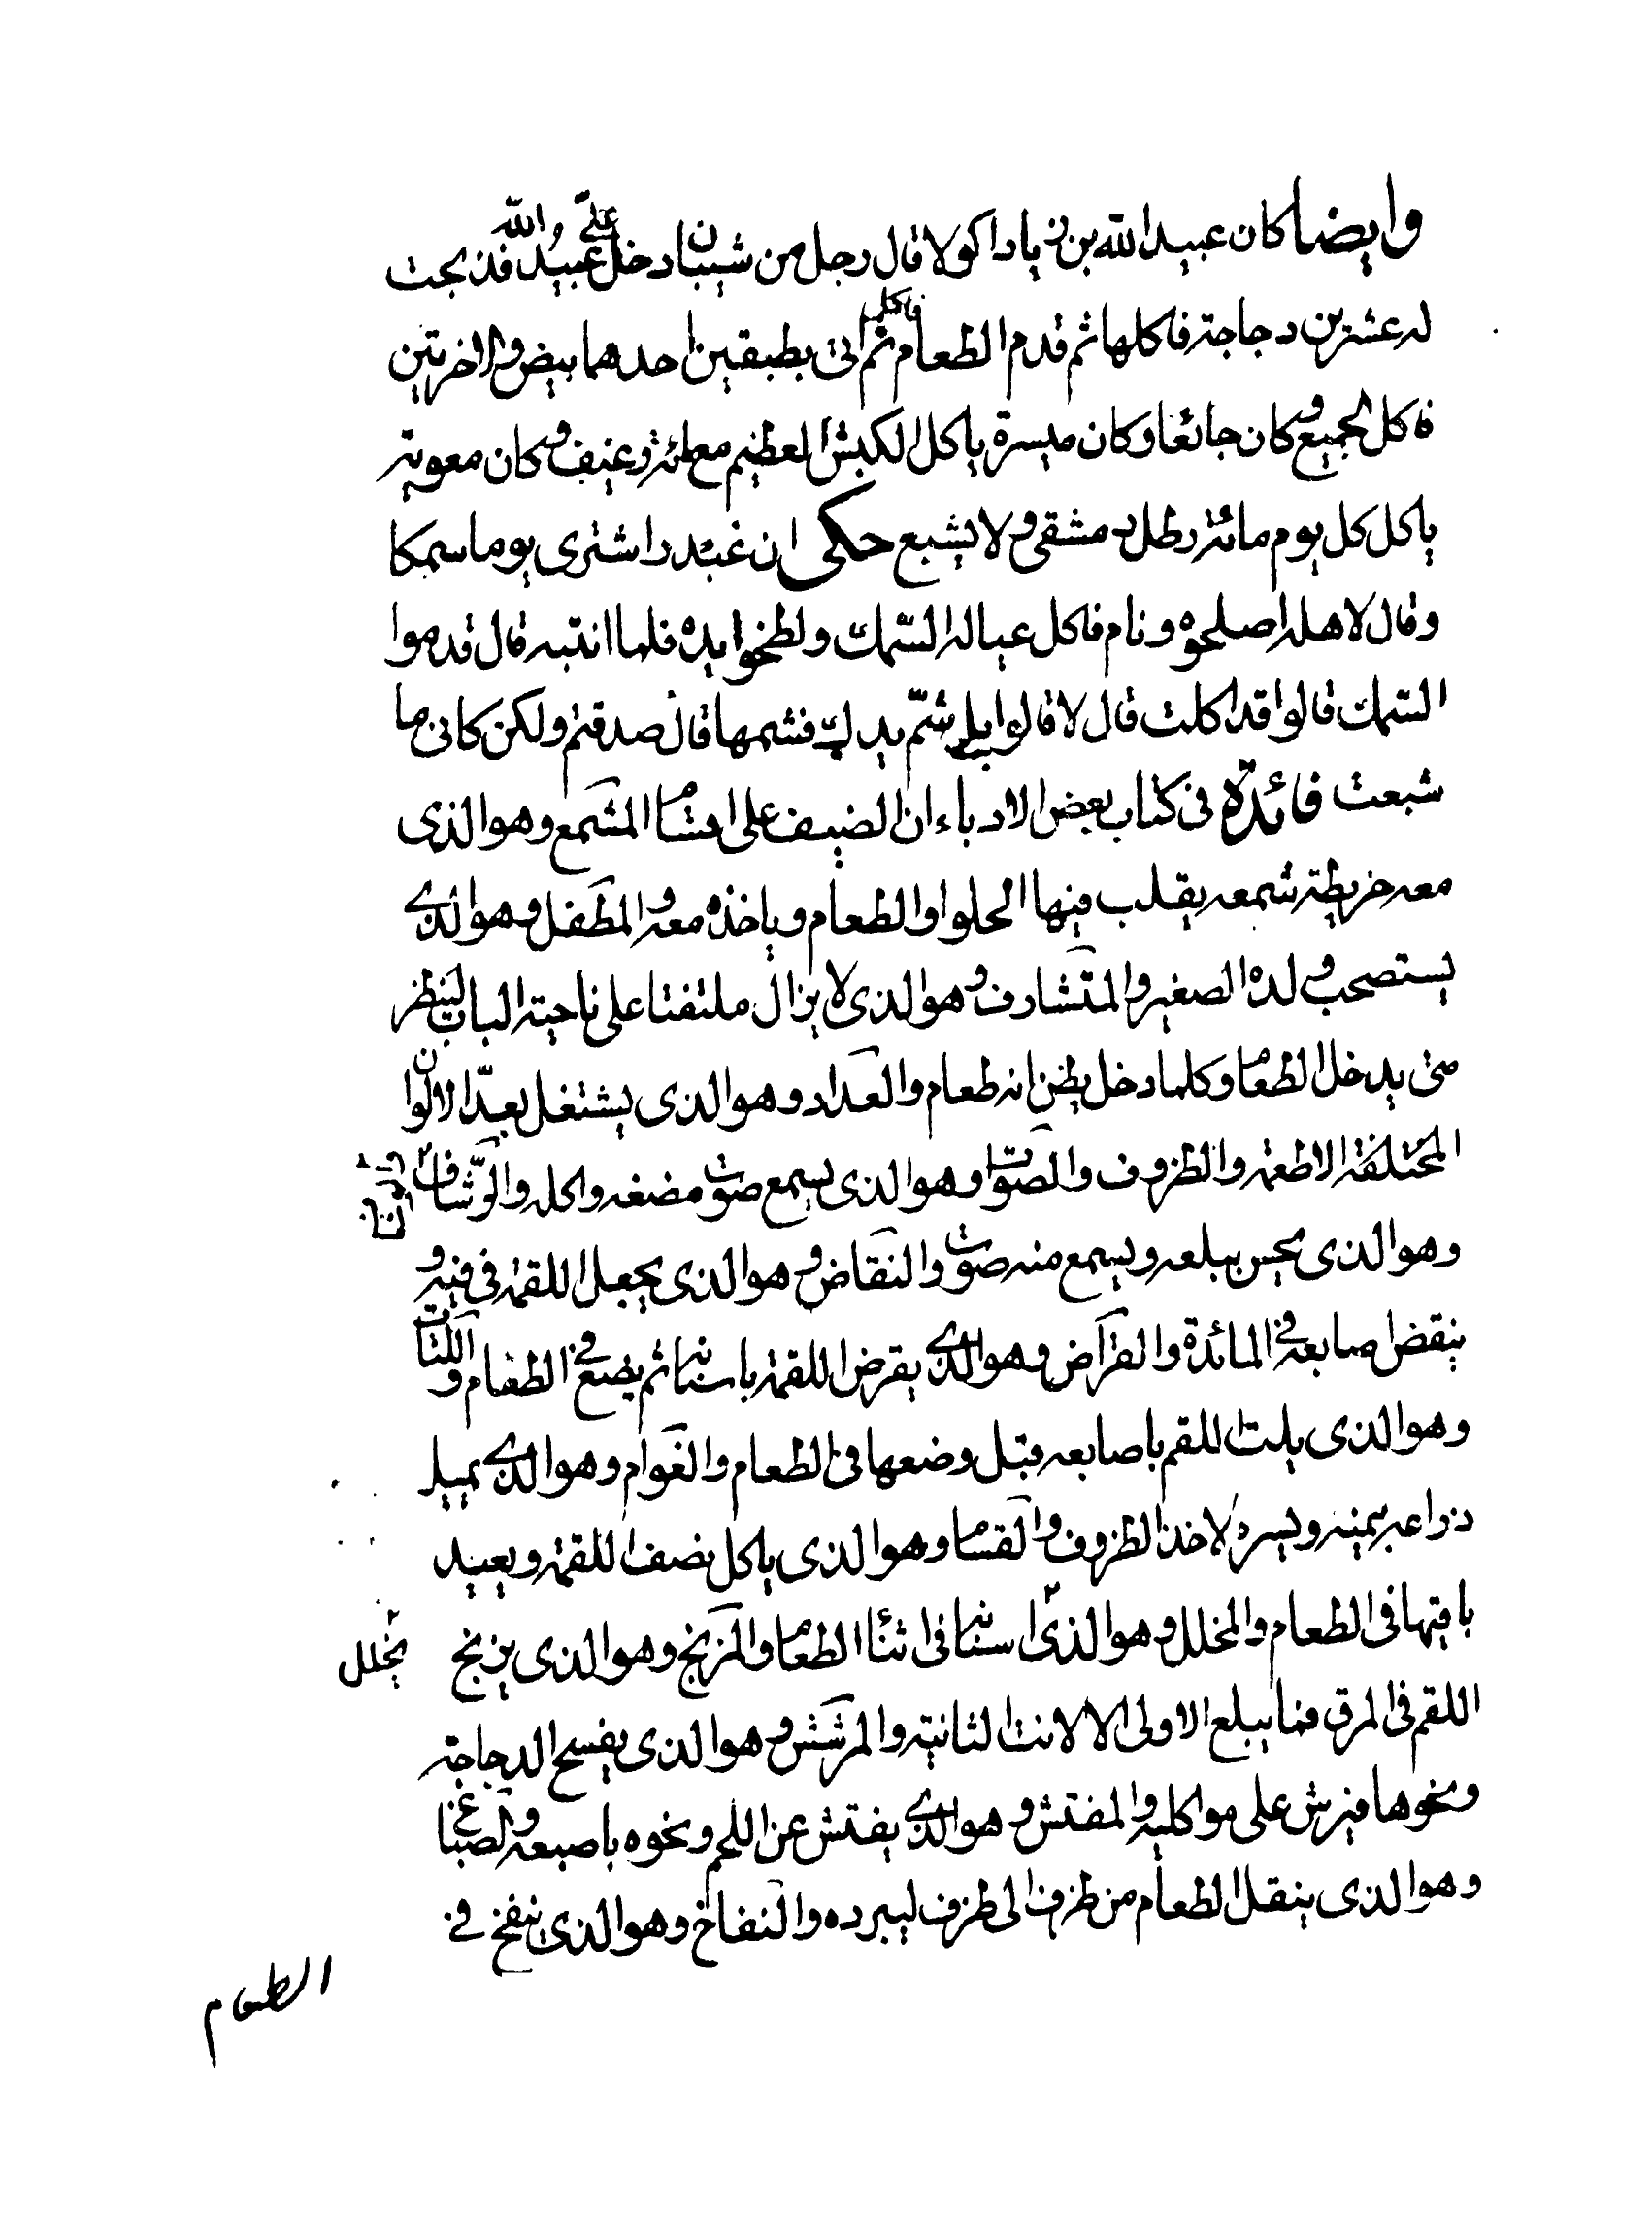 وايضا كان عبيد الله بن زياد اكولا قال رجل من شيبان دخل علىّ عبيد الله فذبحت
له عشرين دجاجة فاكلها ثم قدم الطعام فاكل ثم اتى بطبقين احدهما بيض والاخر تين
فاكل الجميع وكان جائعا وكان ميسرة ياكل الكبش العظيم مع مائة رغيف وكان معوية
ياكل كل يوم مائة رطل دمشقى ولا يشبع حكى ان غندرا اشترى يوما سمكا
وقال لاهله اصلحوه ونام فاكل عياله السّمك ولطخوا يده فلما انتبه قال قدموا
السّمك قالوا قد اكلت قال لا قالوا بلى شمّ يدك فشمها قال صدقتم ولكن كانى ما
شبعت فائدة فى كتاب بعض الادباء ان الضيف على اقسام المشمع وهو الذى
معه خريطة شمعه يقلب فيها الحلوا والطعام وياخذه معه والمطفل وهو الذى
يستصحب ولده الصغير والمتشارف وهو الذى لا يزال ملتفتا على ناحية الباب لينظر
متى يدخل الطعام وكلما دخل يظن انه طعام والعداد وهو الذى يشتغل بعدّ الالوان
المختلفة الاطعمة والظروف والصوّات وهو الذى يسمع صوت مضغه واكله والوشّاف
وهو الذى يحس ببلعه ويسمع منه صوت والنقاض وهو الذى يجعل اللقمة فى فيه و
ينقض اصابعه فى المائدة والقراض وهو الذى يقرض اللقمة باسنانه ثم يضع فى الطعام واللتات
وهو الذى يلت اللقم باصابعه قبل وضعها فى الطعام والعوام وهو الذى يميل
ذراعه يمينه ويسره لاخذ الظروف والقسام وهو الذى ياكل نصف اللقمة ويعيد
باقيها فى الطعام والمخلل وهو الذى اسنانه فى اثناء الطعام والمزنج وهو الذى يزنج
يخلل
اللقم فى المرق فما يبلع الاولى الا لانت الثانية والمرشش وهو الذى يفسح الدجاجة
ونحوها فيرش على مواكليه والمفتش وهو الذى يفتش عن اللحم ونحوه باصبعه والصباغ
وهو الذى ينقل الطعام من ظرف الى ظرف ليبرده والنفاخ وهو الذى ينفخ فى
الطعام